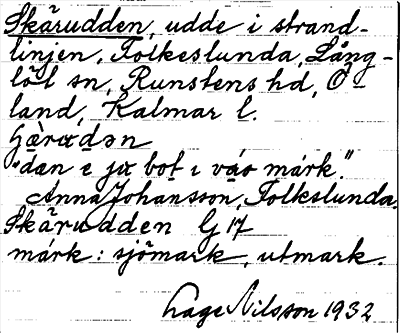 Skärudden, udde i strand-
linjen, Folkeslunda, Lång-
löt sn, Runstens hd, Ö-
land, Kalmar l.
"dan e ja bot i vås márk."
Anna Johansson, Folkslunda.
Skärudden G 17
márk: sjömark, utmark.
Lage Nilsson 1932